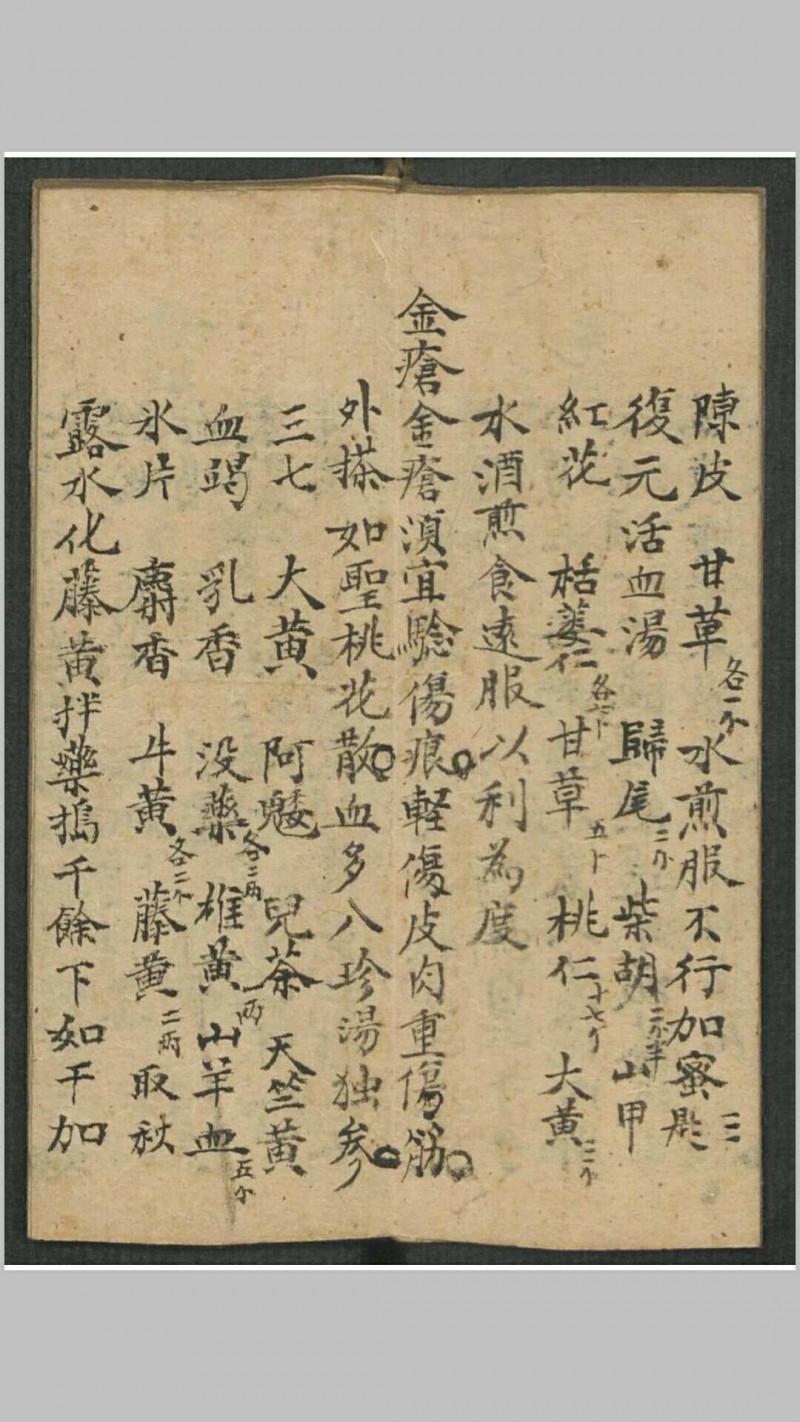 陳皮　甘草各一钅　水煎服不行加蜜匙三
復元活血湯　歸尾二钅　柴胡二钅半　山甲
紅花　栝蔞仁各六卜　甘草五卜　桃仁十七个　大黄三钅
水酒煎食遠服以利為度
金瘡金瘡湏宜驗傷痕軽傷皮肉重傷筋
外搽如聖桃花散血多八珍湯独参
三七　大黄　阿魏　兒茶　天竺黄
血竭　乳香　没藥各二两　雄黄两　山羊血五钅
氷片　麝香　牛黄各二钅　藤黄二两　取秋
露水化藤黄拌藥搗千餘下如干加